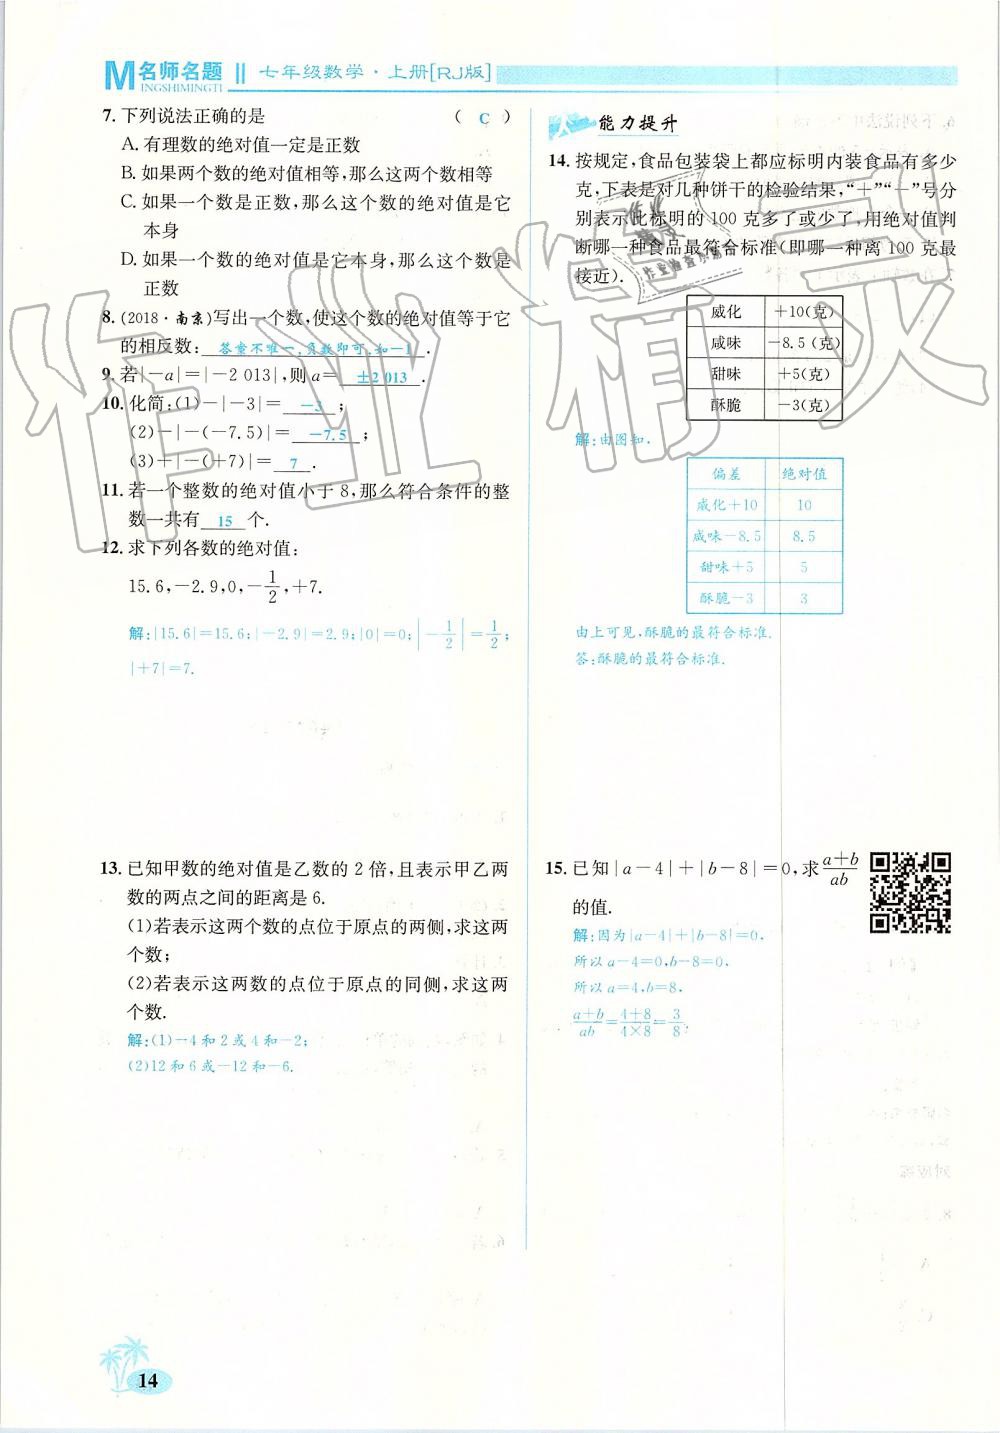 M名师名题 七年级数学·上册[RJ版]
INGSHIMINGTI
7. 下列说法正确的是 ( C )
A. 有理数的绝对值一定是正数
B. 如果两个数的绝对值相等,那么这两个数相等
C. 如果一个数是正数,那么这个数的绝对值是它
本身
D. 如果一个数的绝对值是它本身,那么这个数是
正数
8. (2018·南京)写出一个数,使这个数的绝对值等于它
的相反数: 答案不唯一,负数即可,如-1 .
9. 若|-a|=|-2 013|,则a= ±2 013 .
10. 化简:(1)-|-3|= -3 ;
(2)-|-(-7.5)|= -7.5 ;
(3)+|-(+7)|= 7 .
11. 若一个整数的绝对值小于8,那么符合条件的整
数一共有 15 个.
12. 求下列各数的绝对值:
15.6,-2.9,0,-1/2,+7.
解:|15.6|=15.6;|-2.9|=2.9;|0|=0;|-1/2|=1/2;
|+7|=7.
13. 已知甲数的绝对值是乙数的2倍,且表示甲乙两
数的两点之间的距离是6.
(1)若表示这两个数的点位于原点的两侧,求这两
个数;
(2)若表示这两数的点位于原点的同侧,求这两
个数.
解:(1)-4和2或4和-2;
(2)12和6或-12和-6.
能力提升
14. 按规定,食品包装袋上都应标明内装食品有多少
克,下表是对几种饼干的检验结果,“+”“-”号分
别表示比标明的100克多了或少了,用绝对值判
断哪一种食品最符合标准(即哪一种离100克最
接近).
威化 +10(克)
咸味 -8.5(克)
甜味 +5(克)
酥脆 -3(克)
解:由图知.
偏差 绝对值
威化+10 10
咸味-8.5 8.5
甜味+5 5
酥脆-3 3
由上可见,酥脆的最符合标准.
答:酥脆的最符合标准.
15. 已知|a-4|+|b-8|=0,求(a+b)/ab
的值.
解:因为|a-4|+|b-8|=0.
所以a-4=0,b-8=0.
所以a=4,b=8.
(a+b)/ab=(4+8)/(4×8)=3/8.
14
作业精灵